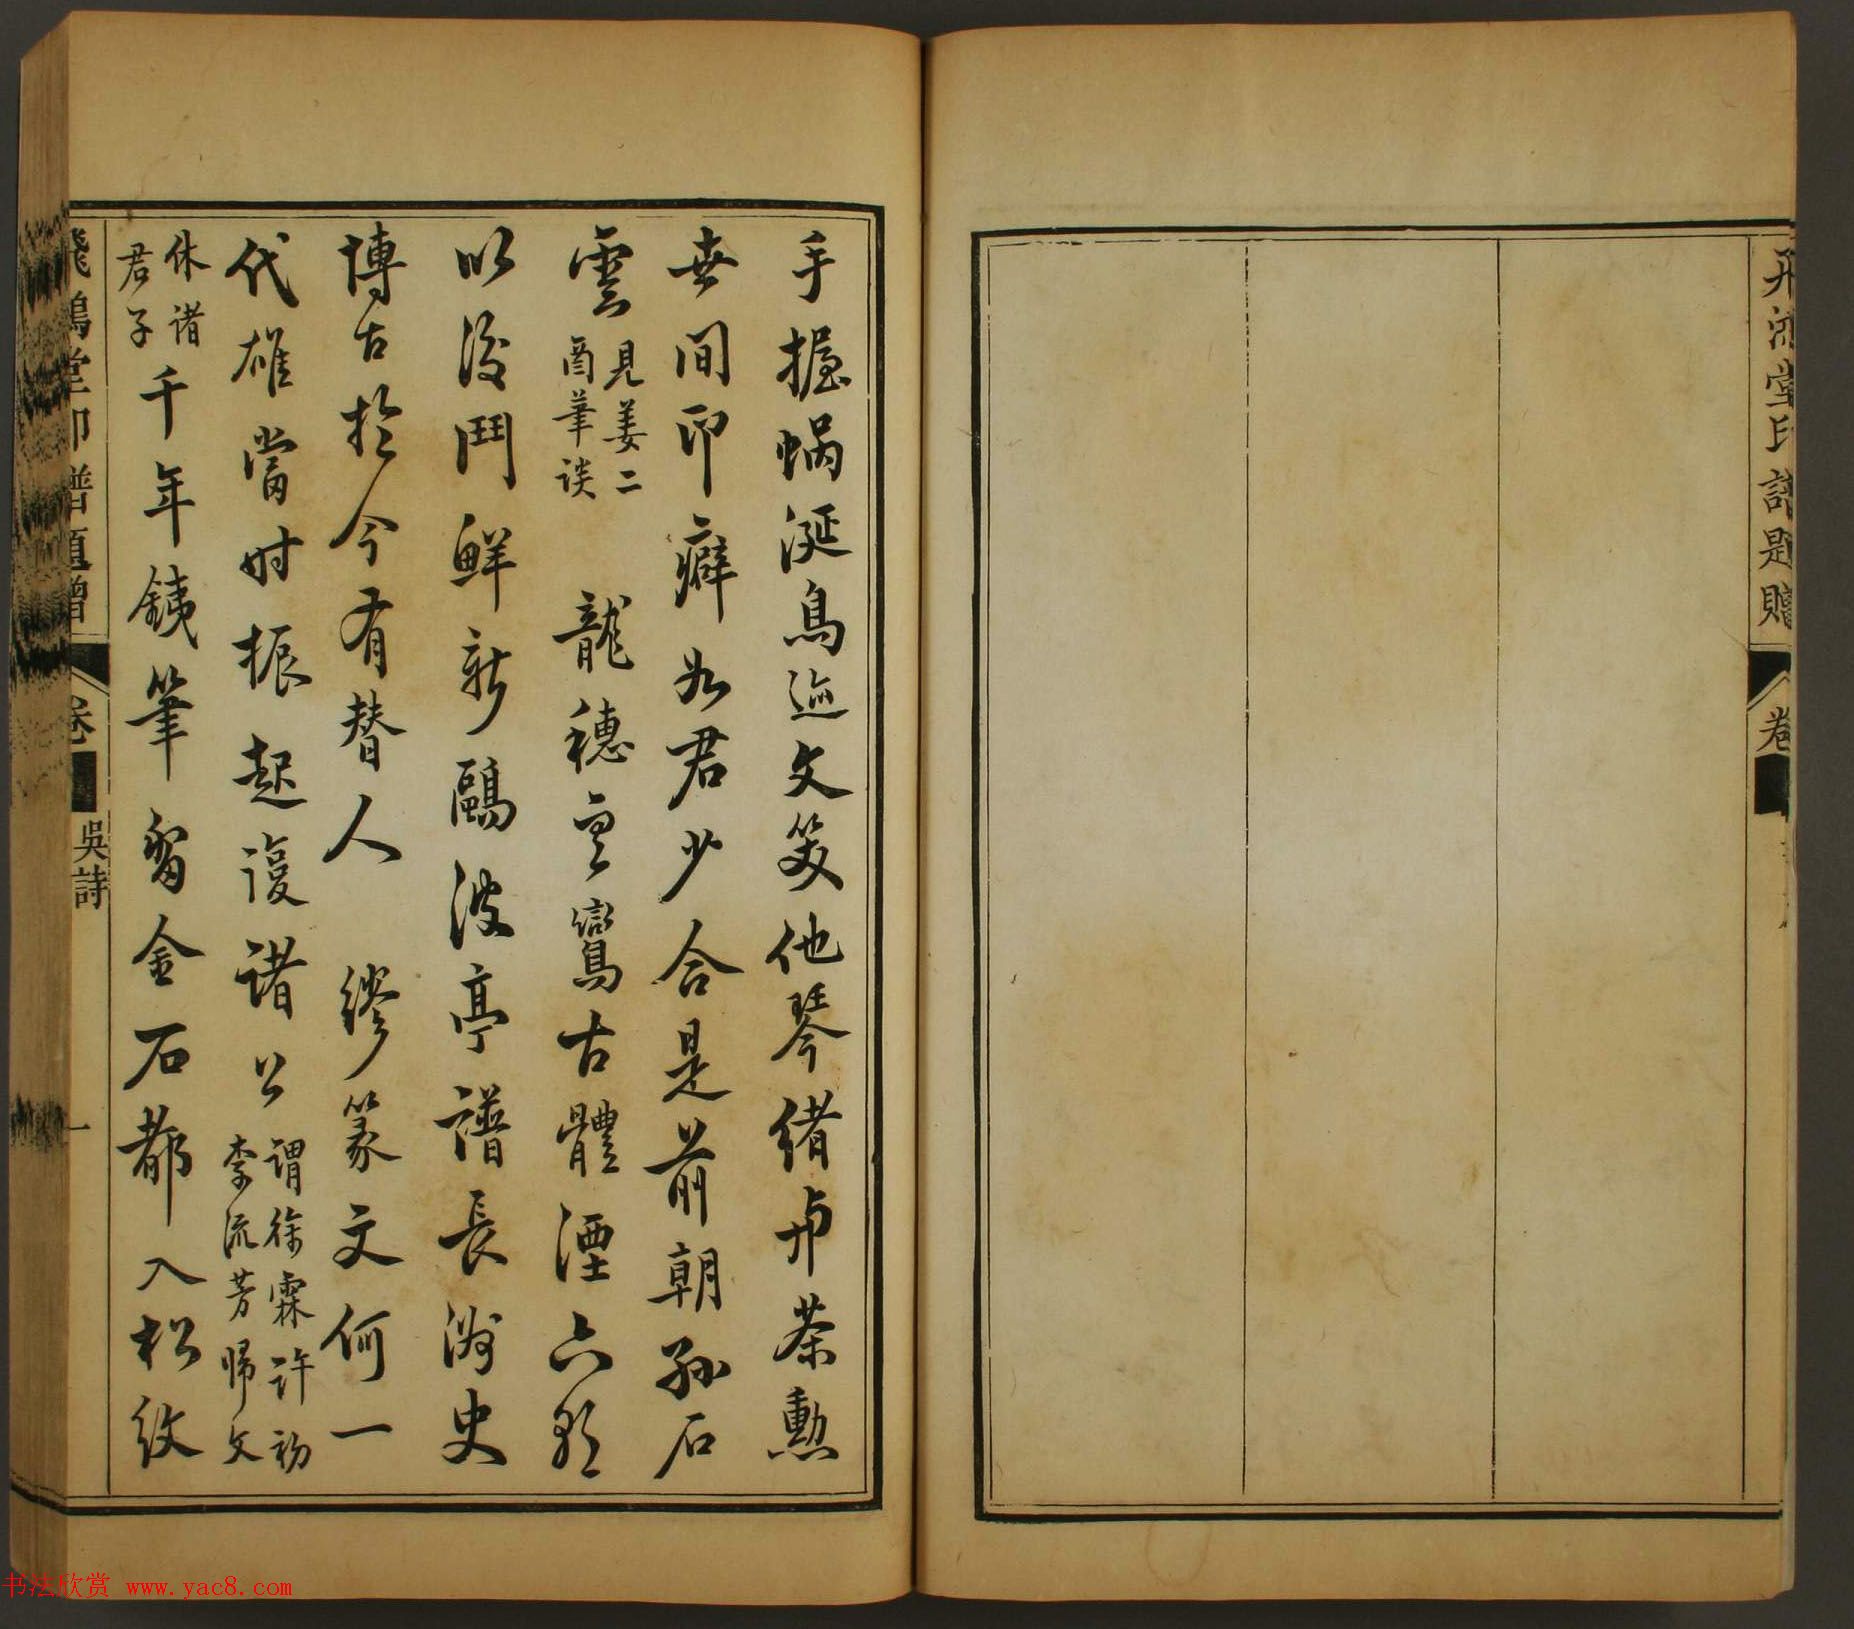 飛鴻堂印譜題贈
卷
手握蝸涎鳥迹文笑他琴緒與茶勳
世間印癖如君少合是前朝孫石
雲 見姜二酉筆談 龍穗雲鸞古體湮六朝
以後鬥鮮新鷗波亭譜長 史
博古於今有替人 繆篆文何一
代雄當時振起復諸公 謂徐霖許初李流芳歸文
休諸君子 千年銕筆留金石都入松紋
飛鴻堂印譜題贈
卷
吳詩
一
书法欣赏 www.yac8.com